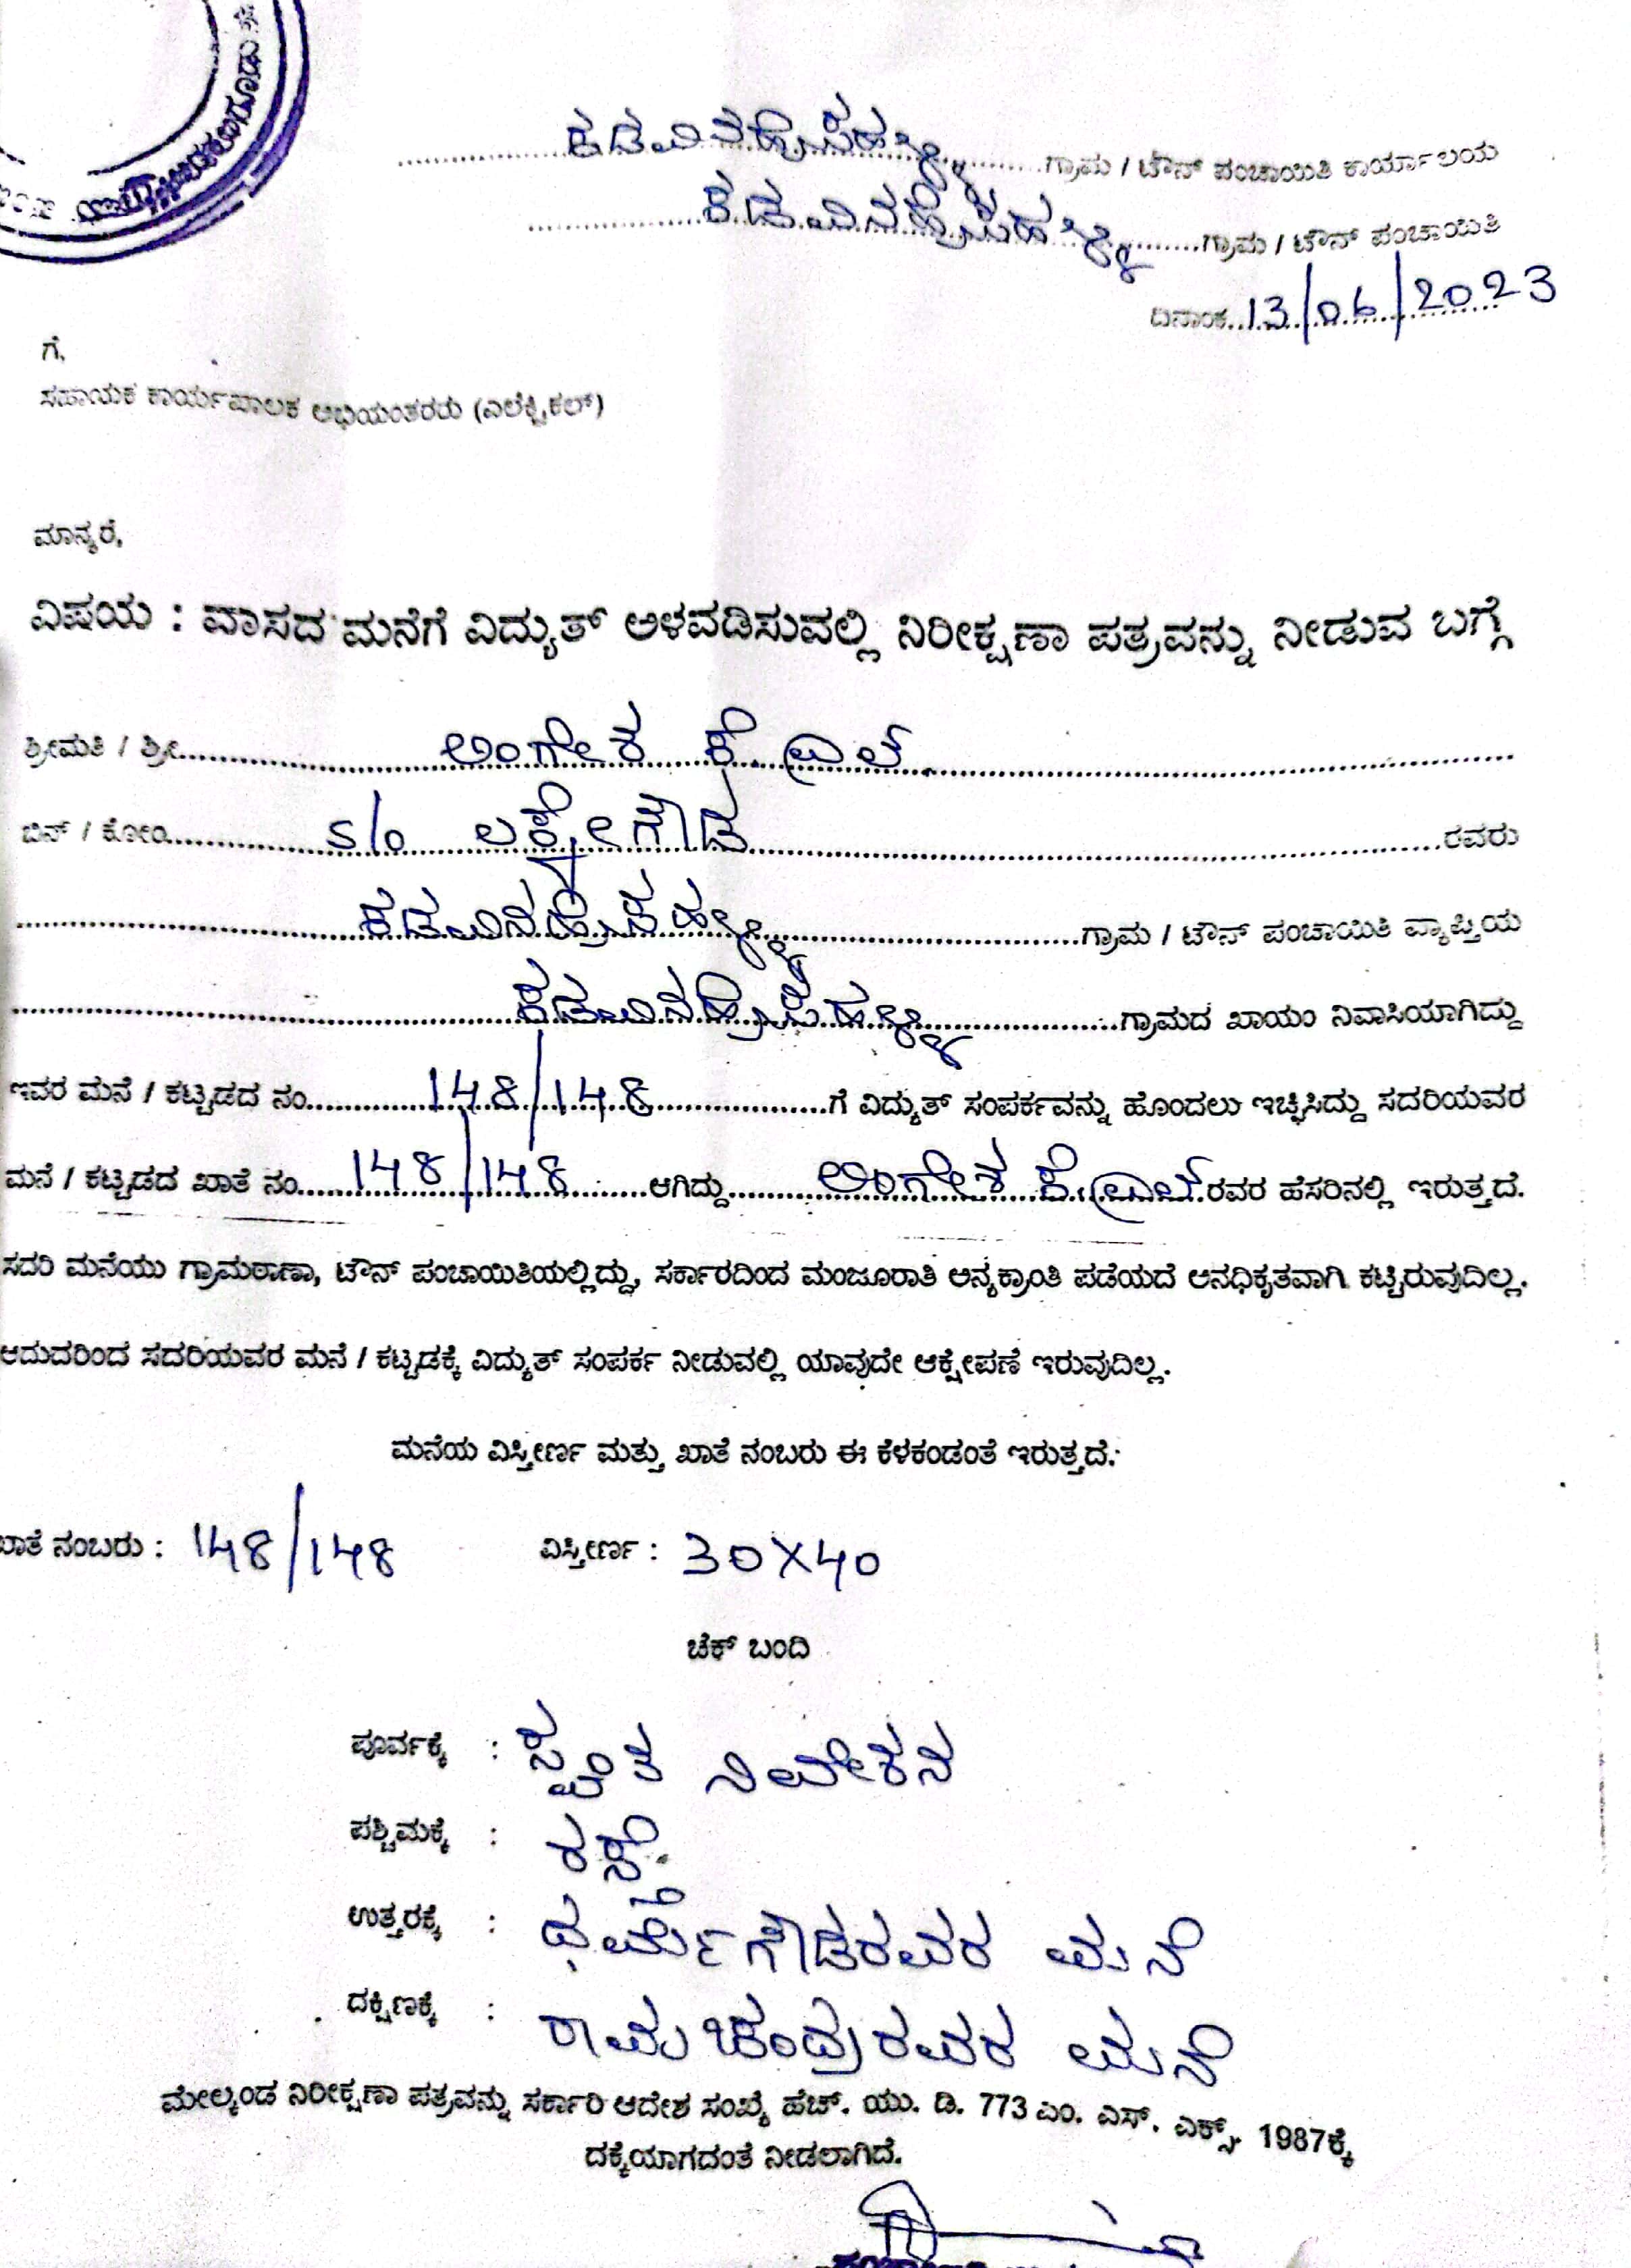 ಕಡವಿನಹೊಸಹಳ್ಳಿ ಗ್ರಾಮ / ಟೌನ್ ಪಂಚಾಯಿತಿ ಕಾರ್ಯಾಲಯ
ಕಡವಿನಹೊಸಹಳ್ಳಿ ಗ್ರಾಮ / ಟೌನ್ ಪಂಚಾಯಿತಿ
ದಿನಾಂಕ..13/06/2023
ಗೆ,
ಸಹಾಯಕ ಕಾರ್ಯಪಾಲಕ ಅಭಿಯಂತರರು (ಎಲೆಕ್ಟ್ರಿಕಲ್)
ಮಾನ್ಯರೆ,
ವಿಷಯ : ವಾಸದ ಮನೆಗೆ ವಿದ್ಯುತ್ ಅಳವಡಿಸುವಲ್ಲಿ ನಿರೀಕ್ಷಣಾ ಪತ್ರವನ್ನು ನೀಡುವ ಬಗ್ಗೆ
ಶ್ರೀಮತಿ / ಶ್ರೀ ಕೆ. ಎಲ್.
ಬಿನ್ / ಕೋಂ S/o ಲಕ್ಕೇಗೌಡ ರವರು
ಕಡವಿನಹೊಸಹಳ್ಳಿ ಗ್ರಾಮ / ಟೌನ್ ಪಂಚಾಯಿತಿ ವ್ಯಾಪ್ತಿಯ
ಕಡವಿನಹೊಸಹಳ್ಳಿ ಗ್ರಾಮದ ಖಾಯಂ ನಿವಾಸಿಯಾಗಿದ್ದು
ಇವರ ಮನೆ / ಕಟ್ಟಡದ ನಂ. 148/148 ಗೆ ವಿದ್ಯುತ್ ಸಂಪರ್ಕವನ್ನು ಹೊಂದಲು ಇಚ್ಛಿಸಿದ್ದು ಸದರಿಯವರ
ಮನೆ / ಕಟ್ಟಡದ ಖಾತೆ ನಂ. 148/148 ಆಗಿದ್ದು ಕೆ.ಎಲ್ ರವರ ಹೆಸರಿನಲ್ಲಿ ಇರುತ್ತದೆ.
ಸದರಿ ಮನೆಯು ಗ್ರಾಮಠಾಣಾ, ಟೌನ್ ಪಂಚಾಯಿತಿಯಲ್ಲಿದ್ದು, ಸರ್ಕಾರದಿಂದ ಮಂಜೂರಾತಿ ಅನ್ಯಕ್ರಾಂತಿ ಪಡೆಯದೆ ಅನಧಿಕೃತವಾಗಿ ಕಟ್ಟಿರುವುದಿಲ್ಲ.
ಆದುದರಿಂದ ಸದರಿಯವರ ಮನೆ / ಕಟ್ಟಡಕ್ಕೆ ವಿದ್ಯುತ್ ಸಂಪರ್ಕ ನೀಡುವಲ್ಲಿ ಯಾವುದೇ ಆಕ್ಷೇಪಣೆ ಇರುವುದಿಲ್ಲ.
ಮನೆಯ ವಿಸ್ತೀರ್ಣ ಮತ್ತು ಖಾತೆ ನಂಬರು ಈ ಕೆಳಕಂಡಂತೆ ಇರುತ್ತದೆ.
ಖಾತೆ ನಂಬರು : 148/148 ವಿಸ್ತೀರ್ಣ : 30X40
ಚೆಕ್ ಬಂದಿ
ಪೂರ್ವಕ್ಕೆ : ಸ್ವಂತ ನಿವೇಶನ
ಪಶ್ಚಿಮಕ್ಕೆ : ರಸ್ತೆ
ಉತ್ತರಕ್ಕೆ : ಧರ್ಮೇಗೌಡರವರ ಮನೆ
ದಕ್ಷಿಣಕ್ಕೆ : ರಾಮಚಂದ್ರರವರ ಮನೆ
ಮೇಲ್ಕಂಡ ನಿರೀಕ್ಷಣಾ ಪತ್ರವನ್ನು ಸರ್ಕಾರಿ ಆದೇಶ ಸಂಖ್ಯೆ ಹೆಚ್. ಯು. ಡಿ. 773 ಎಂ. ಎಸ್. ಎಕ್ಸ್. 1987ಕ್ಕೆ
ದಕ್ಕೆಯಾಗದಂತೆ ನೀಡಲಾಗಿದೆ.